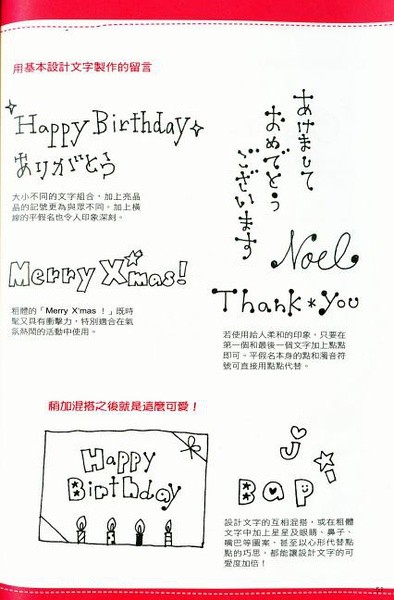 用基本設計文字製作的留言
Happy Birthday
ありがとう
大小不同的文字組合，加上亮晶
晶的記號更為與眾不同。加上橫
線的平假名也令人印象深刻。
あけまして
おめでとう
ございます
Noel
Merry X'mas!
Thank * You
粗體的「Merry X'mas！」既時
髦又具有衝擊力，特別適合在氣
氛熱鬧的活動中使用。
若使用給人柔和的印象，只要在
第一個和最後一個文字加上點點
即可。平假名本身的點和濁音符
號可直接用點點代替。
稍加混搭之後就是這麼可愛！
Happy
Birthday
J
B a p
設計文字的互相混搭，或在粗體
文字中加上星星及眼睛、鼻子、
嘴巴等圖案，甚至以心形代替點
點的巧思，都能讓設計文字的可
愛度加倍！